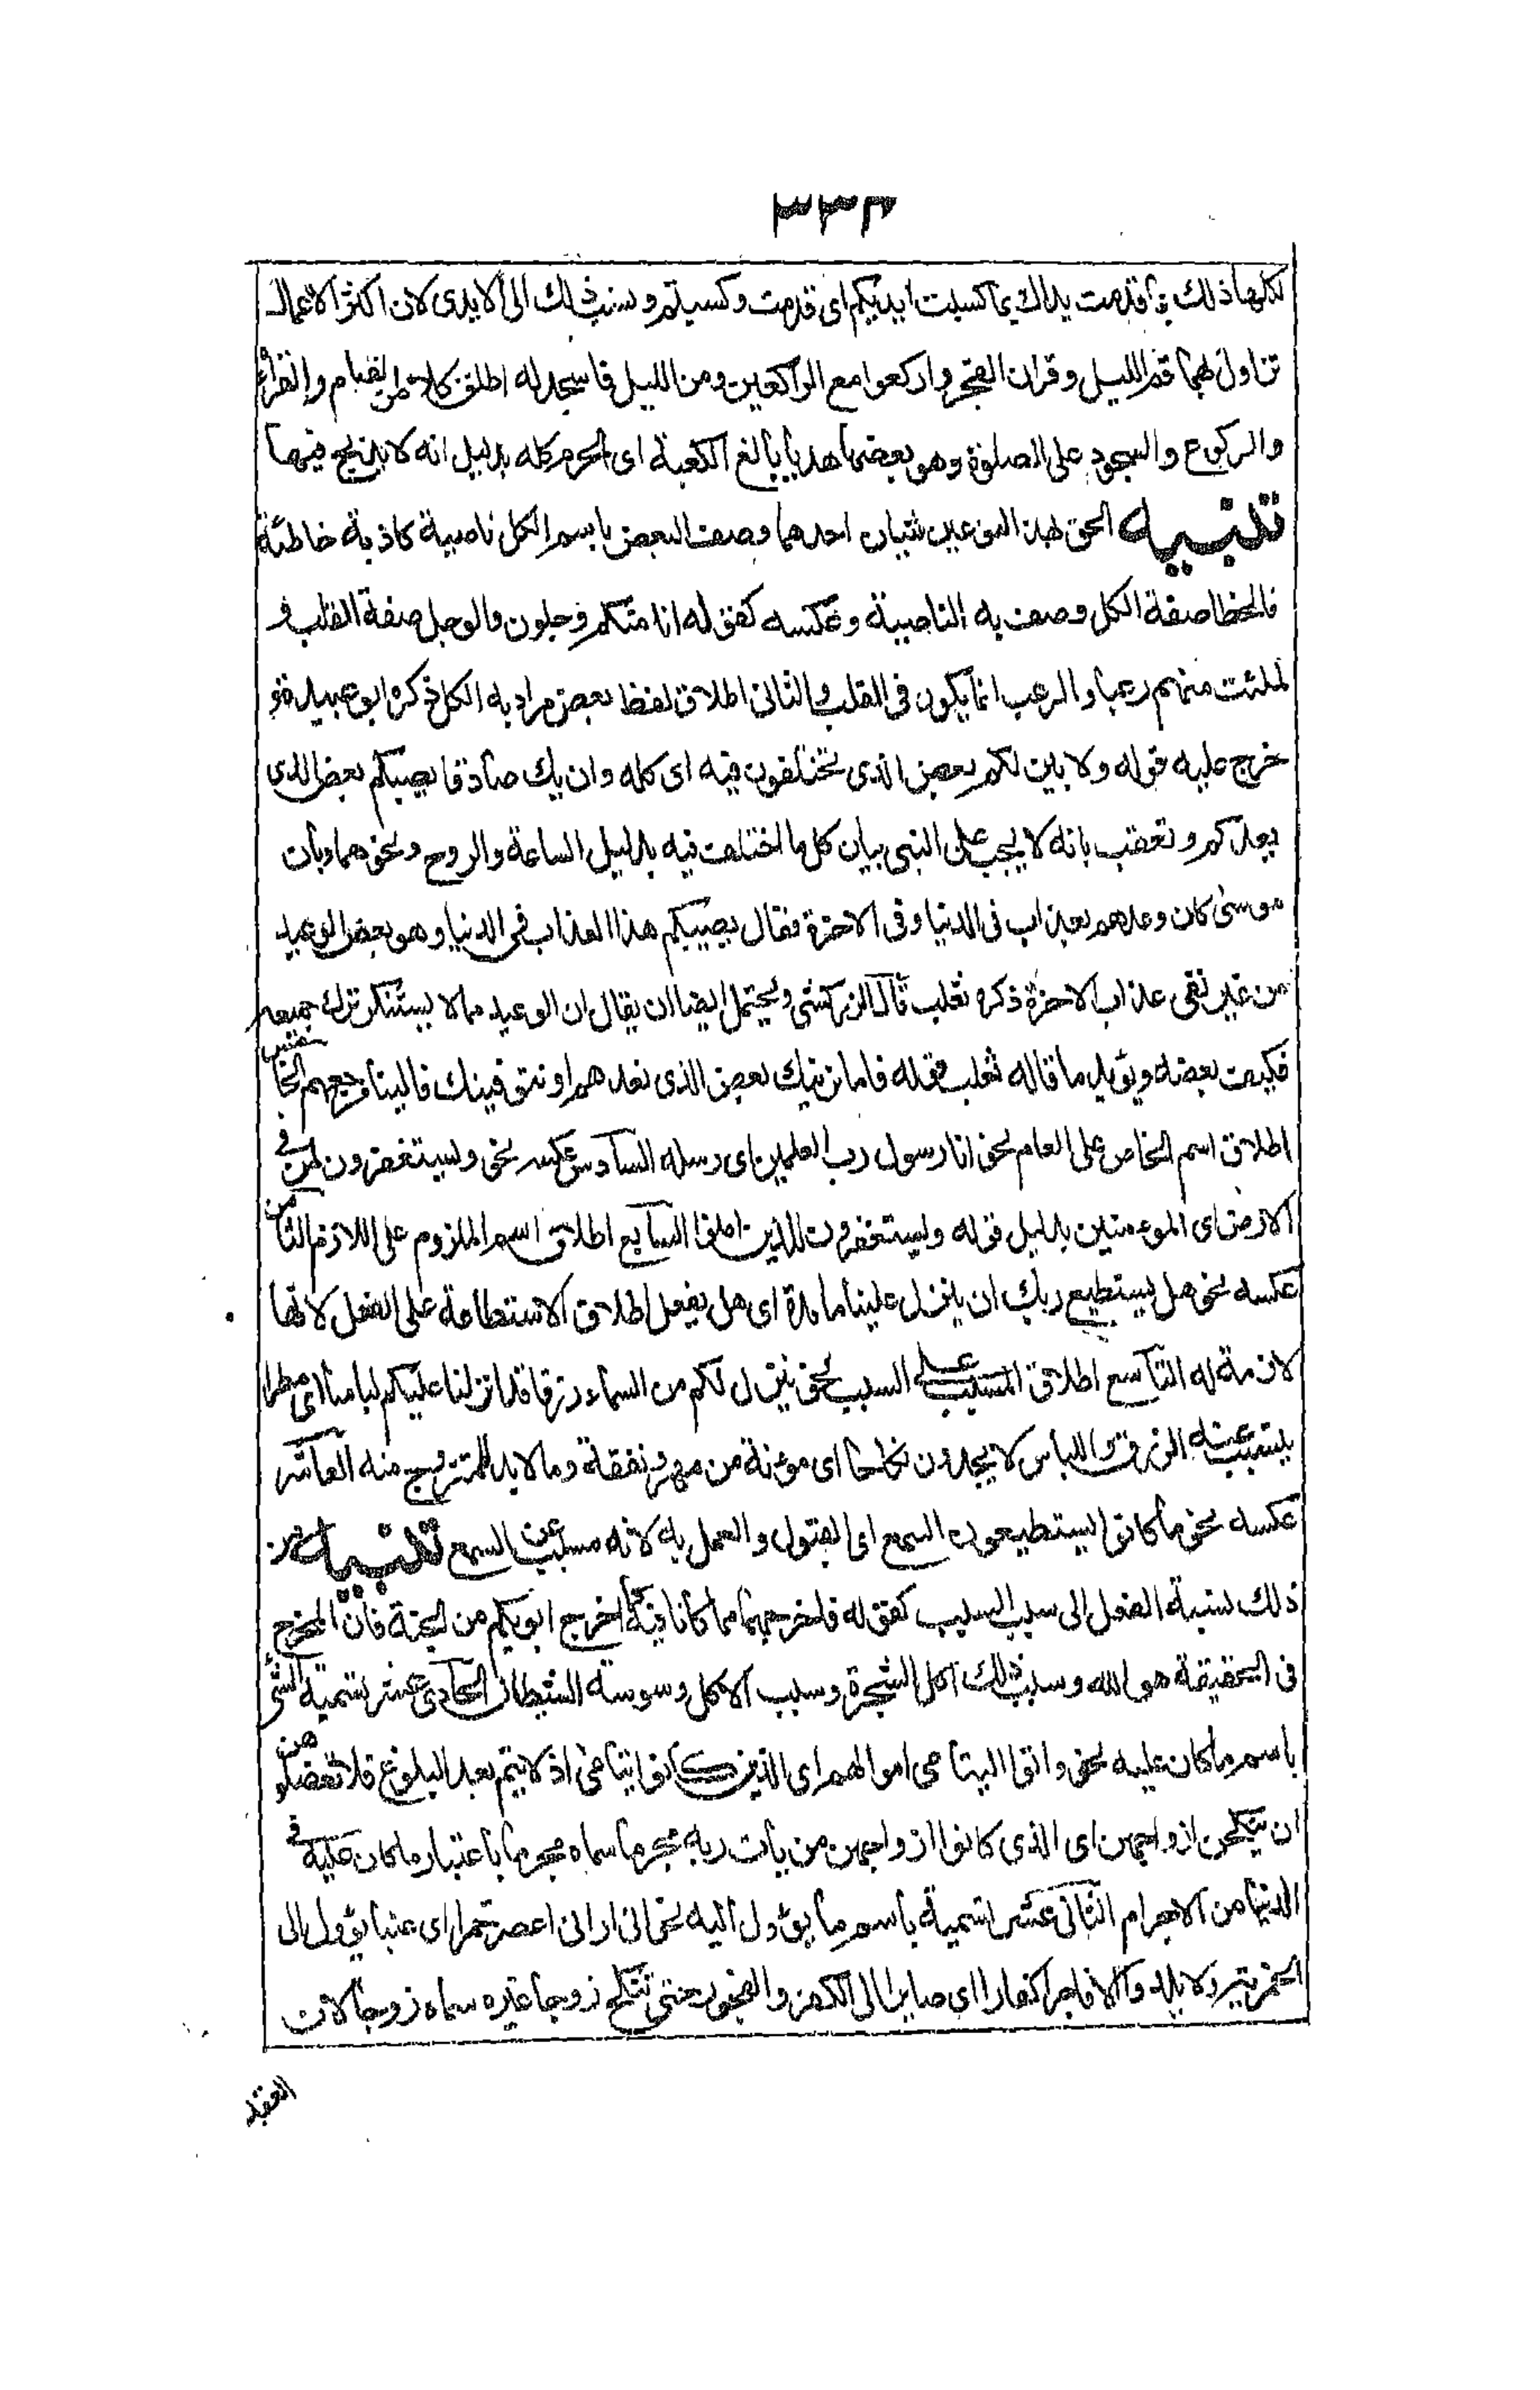 ٣٣٤
لكلها ذلك بما قدمت يداك بما كسبت ايديكم اى قدمت وكسبتم ونسب ذلك الى الايدى لان اكثر الاعمال
تزاول بهما قم الليل وقران الفجر واركعوا مع الراكعين ومن الليل فاسجد له اطلق كلا من القيام والقراة
والركوع والسجود على الصلوة وهو بعضها هديا بالغ الكعبة اى الحرم كله بدليل انه لا يذبح فيها
تنبيه الحق بهذا النوعين شيان احدهما وصف البعض باسم الكل ناصية كاذبة خاطئة
فالخطا صفة الكل وصف به الناصية وعكسه كقوله انا منكم وجلون والوجل صفة القلب و
لملئت منهم رعبا والرعب انما يكون فى القلب والثانى اطلاق لفظ بعض مراد به الكل ذكره ابو عبيدة و
خرج عليه قوله ولابين لكم بعض الذى تختلفون فيه اى كله وان يك صادقا يصبكم بعض الذى
يعدكم وتعقب بانه لا يجب على النبى بيان كل ما اختلف فيه بدليل الساعة والروح ونحوهما وبان
موسى كان وعدهم بعذاب فى الدنيا وفى الاخرة فقال يصيبكم هذا العذاب فى الدنيا وهو بعض الوعيد
من غير نفى عذاب الاخرة ذكره ثعلب قال الزركشى ويحتمل ايضا ان يقال ان الوعيد مما لا يستنكر ترك جميعه
فكيف بعضه ويؤيد ما قاله ثعلب قوله فاما نرينك بعض الذى نعدهم او نتوفينك فالينا مرجعهم الخامس
اطلاق اسم الخاص على العام نحو انا رسول رب العلمين اى رسله السادس عكسه نحو ويستغفرون لمن فى
الارض اى المومنين بدليل قوله ويستغفرون للذين امنوا السابع اطلاق اسم الملزوم على اللازم الثامن
عكسه نحو هل يستطيع ربك ان ينزل علينا مائدة اى هل يفعل اطلاق الاستطاعة على الفعل لانها
لازمة له التاسع اطلاق المسبب على السبب نحو ينزل لكم من السماء رزقا قد انزلنا عليكم لباسا اى مطرا
يتسبب عنه الرزق واللباس لا يجدون نكاحا اى مؤنة من مهر ونفقة وما لا بد للمتزوج منه العاشر
عكسه نحو ما كانوا يستطيعون السمع اى القبول والعمل به لانه مسبب عن السمع تنبيه من
ذلك نسبة الفعل الى سبب السبب كقوله فاخرجهما مما كانا فيه كما اخرج ابويكم من الجنة فان المخرج
فى الحقيقة هو الله وسبب ذلك اكل الشجرة وسبب الاكل وسوسة الشيطان الحادى عشر تسمية الشئ
باسم ما كان عليه نحو واتوا اليتامى اموالهم اى الذين كانوا يتامى اذ لا يتم بعد البلوغ فلا تعضلوهن
ان ينكحن ازواجهن اى الذى كانوا ازواجهن من يات ربه مجرما سماه مجرما باعتبار ما كان عليه فى
الدنيا من الاجرام الثانى عشر تسمية باسم ما يؤول اليه نحو انى ارانى اعصر خمرا اى عنبا يؤول الى
الخمرية ولا يلدوا الا فاجرا كفارا اى صايرا الى الكفر والفجور حتى تنكح زوجا غيره سماه زوجا لان
العقد